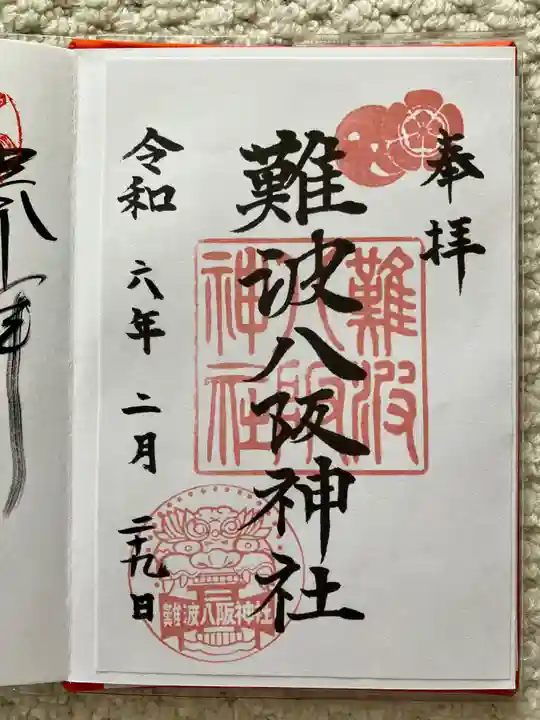 奉拝
難波八阪神社
難波
八阪
神社
難波八阪神社
令和 六年 二月 二十九日